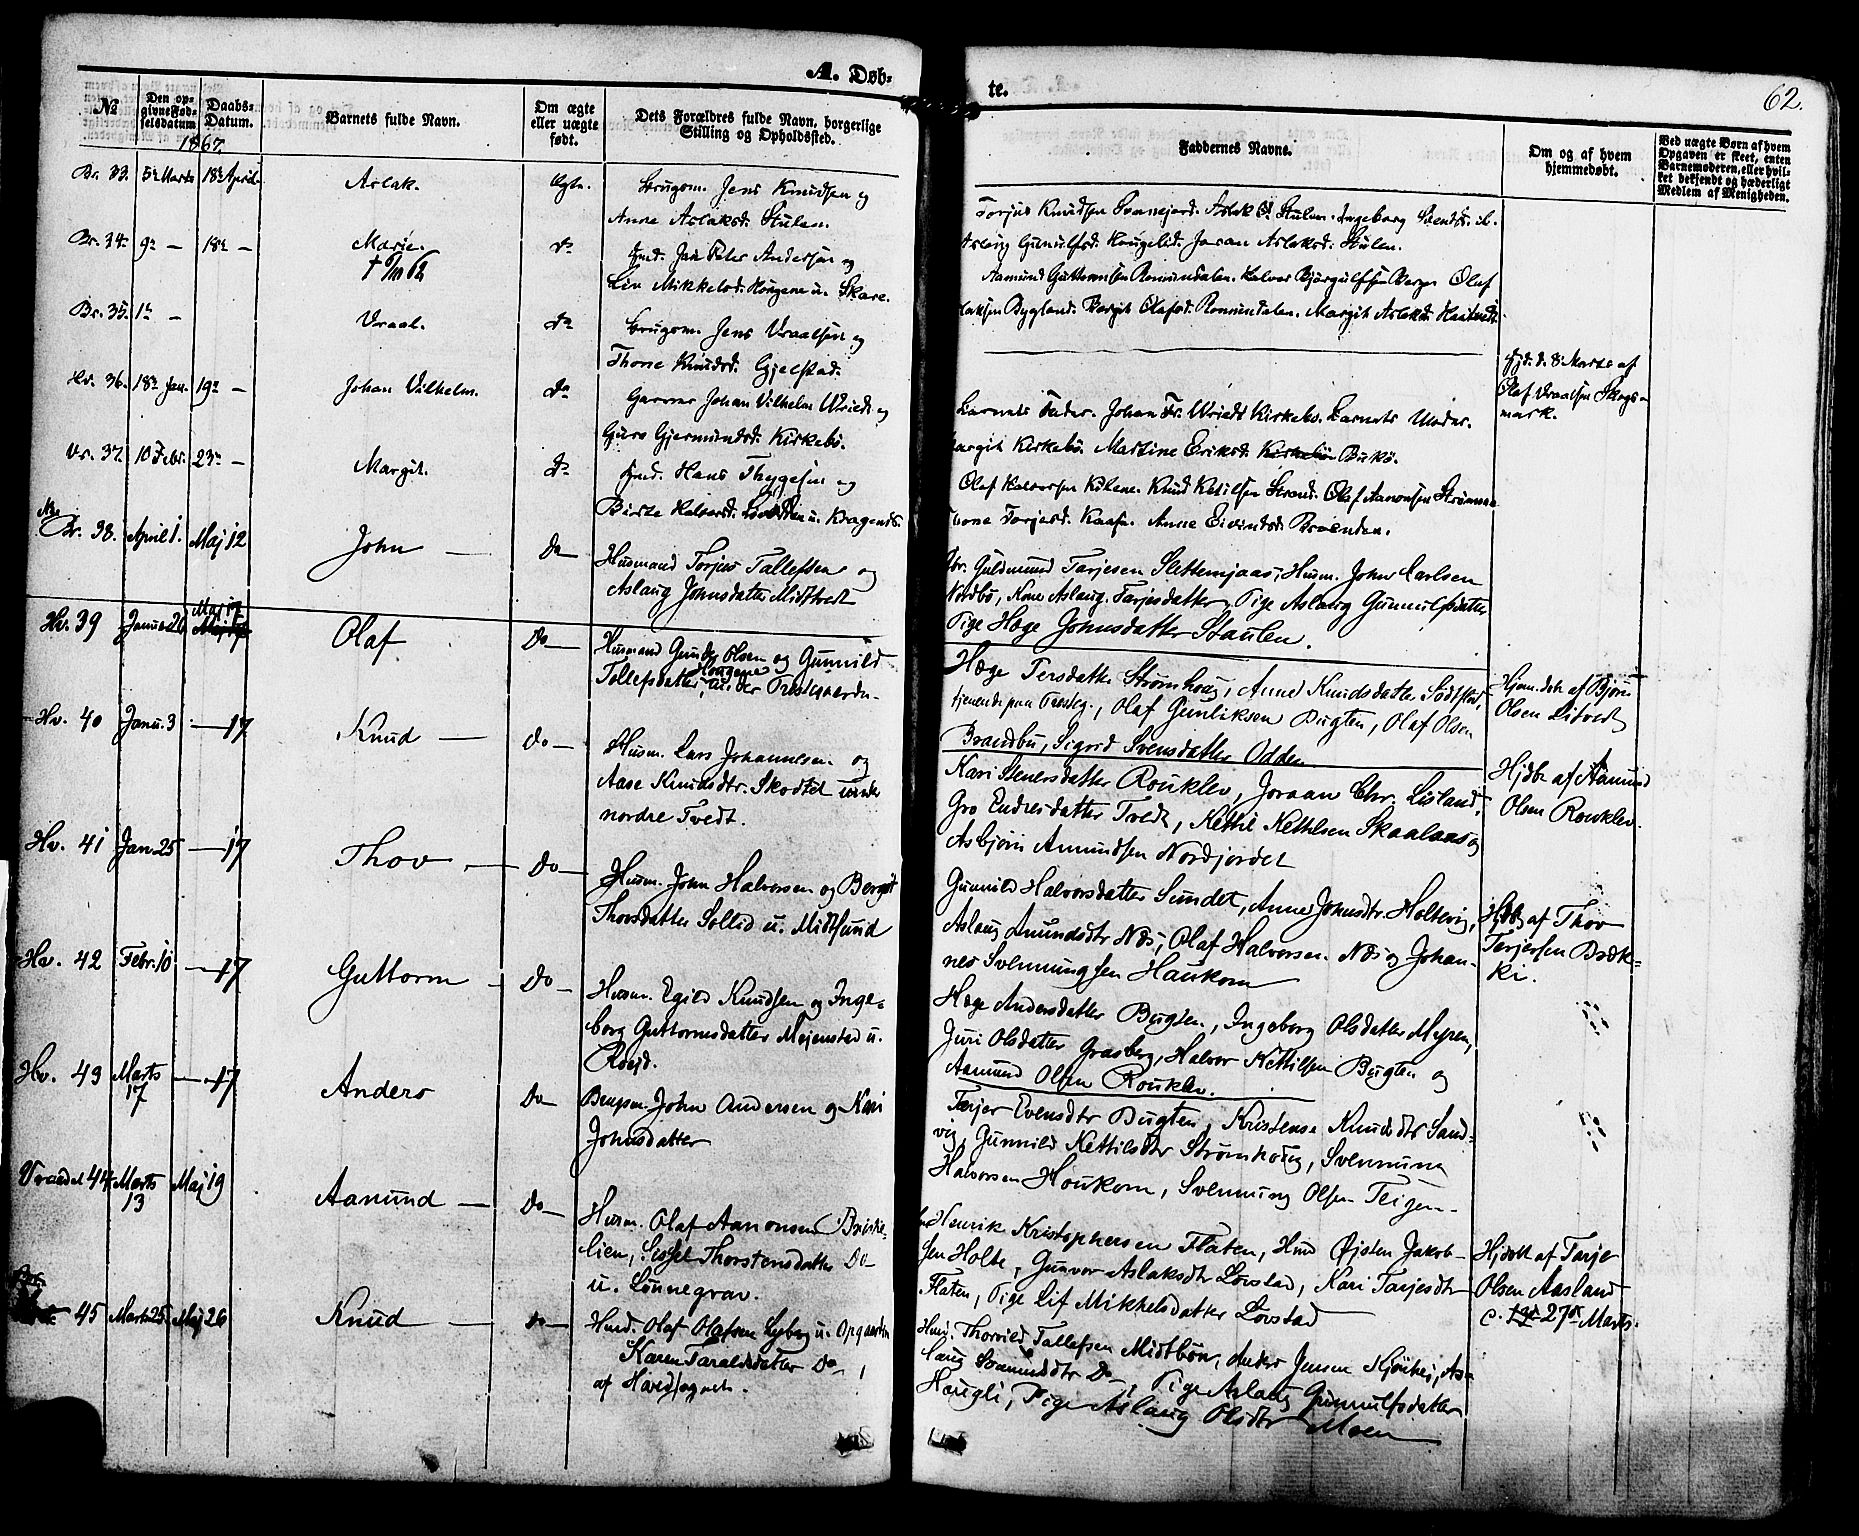 A. Døb-
te.
62.
№
Den op-
givne Fød-
selsdatum
Daabs-
Datum.
Barnets fulde Navn.
Om ægte
eller uægte
født.
Dets Forældres fulde Navn, borgerlige
Stilling og Opholdssted.
Faddernes Navne.
Om og af hvem
hjemmedøbt.
Ved uægte Børn af hvem
Opgaven er skeet, enten
Barnemoderen, eller hvil-
ket bekjendt og hæderligt
Medlem af Menigheden.
1867.
Br. 33. 5te Marts 18de April. Aslak. Ægte. Brugsm. Jens Knudsen og
Anne Aslaksd. Stulen.
Torjus Knudsen Ingeborg
Aslaug Gunnulfsd. Haugelid. Joran Aslaksd. Stulen.
Br. 34. 9de — 18de — Marie. do Jens Peter Andersen og
Liv Mikkelsd. Haugene u. Skare.
Aamund Guttormsen Romundalen. Halvor Bjørgulfsen Berge Olaf
Bygland. Bergit Olafsd. Romundalen. Margit Aslaksd.
Br. 35. 1te — Vraal. do Brugsm. Jens Vraalsen og
Thone Knudsd. Gjelstad.
Hjd. d. 8 Marts af
Olaf Vraalsen Skogs-
mark.
Hv. 36. 18de Jan. 19de — Johan Vilhelm. do Garver Johan Vilhelm Wriedt og
Guro Gjermundsd. Kirkebø.
Barnets Fader. Johan Fr. Wriedt Kirkebø. Barnets Moder.
Margit Kirkebø. Martine Eriksd. Kirkebø Bukø.
Vr. 37. 10 Febr. 23de — Margit. do Hans Thygesen og
Birte Halvorsd. u. Kragenæs.
Olaf Halvorsen Kilene. Knud Ketilsen Strand. Olaf Aanonsen
Thone Torjesd. Kaasa. Anne Eivindsd. Brænden.
Br. 38. April 1. Maj 12 John — Do — Husmand Torjus Tallefsen og
Aslaug Johnsdatter Midtvedt
Guldmund Tarjesen Slettemjaas, Husm. John Carlsen
Nordbø, Kone Aslaug Tarjesdatter, Pige Aslaug Gunnulfsdatter
Pige Hæge Johnsdatter Staulen.
Hv. 39 Januar 26 Maj 17 Olaf Do — Husmand Gunder Olsen og Gunnild
Tollefsdatter, Haugene under Præstegaarden
Hæge Tersdatter Strømhoug, Anne Knudsdatter
tjenende paa Præsteg., Olaf Gunleiksen Bugten, Olaf Olsen
Brandbu, Sigrid Svensdatter Odden
Hjemdøbt af Bjørn
Olsen Litvedt
Hv. 40 Janu. 3 — 17 Knud — Do — Husm. Lars Johannesen og
Aase Knudsdtr. Skodtet under
nordre Tvedt.
Kari Stenersdatter Rouklev, Joraan Chr. Lisland,
Gro Endresdatter Tvedt, Kettil Kethilsen Skaalaas og
Asbjørn Amundsen Nordjordet
Hjdbt af Aamund
Olsen Rouklev.
Hv. 41 Jan 25 — 17 Thov — Do — Husm. John Halvorsen og Bergit
Thorsdatter Sollid u. Midtsund
Gunnild Halvorsdatter Sundet, Anne Johnsdtr. Holtevig,
Aslaug Amundsdtr Næs, Olaf Halvorsen Næs og Johan-
nes Svennungsen Haukom
Hjdbt af Thov
Tarjesen Bæk-
ki.
Hv. 42 Febr. 10 — 17 Guttorm — Do — Husm. Egild Knudsen og Inge-
borg Guttormsdatter Mejenstad u.
Hæge Andersdatter Bugten, Ingeborg Olsdatter Myren,
Juri Olsdatter Grasberg, Halvor Kettilsen Bugten og
Aamund Olsen Rouklev.
Hv. 43 Marts 17 — 17 Anders Do — Brugsm. John Andersen og Kari
Johnsdatter
Tarjer Evensdtr Bugten, Kristense Knudsdtr Sand-
vig, Gunnild Kettilsdtr Strømhoug, Svennung
Halvorsen Houkom, Svennung Olsen Teigen
Vraadal 44 Marts 13 Maj 19 Aamund — Do — Husm. Olaf Aanonsen Briske-
lien, Sisset Thorstensdatter Do —
u. Lønnegrav.
Henrik Kristophersen Flaten, Husm Øjsten Jakob-
sen Holte, Gunvor Aslaksdtr Lovstad, Kari Tarjesdtr
Flaten, Pige Lif Mikkelsdatter Lovstad
Hjdøbt af Tarje
Olsen Aasland
27de Marts.
45 Marts 25 Maj 26 Knud — Do — Husm. Olaf Olafsen Lyberg u. Opgaarden
Karen Taraldsdatter Do —
af Hvidesogne.
Husm. Thorvild Tallefsen Midtbøn, Anders Jensen As-
laug Do —, Pige Aslaug Gunnulfsdatter
Haugli, Pige Aslaug Olsdtr Moen